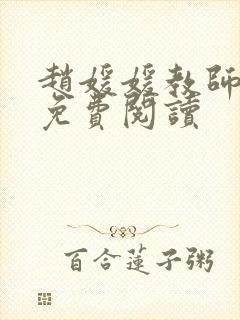 趙媛媛教師
免費閱讀
百合蓮子粥